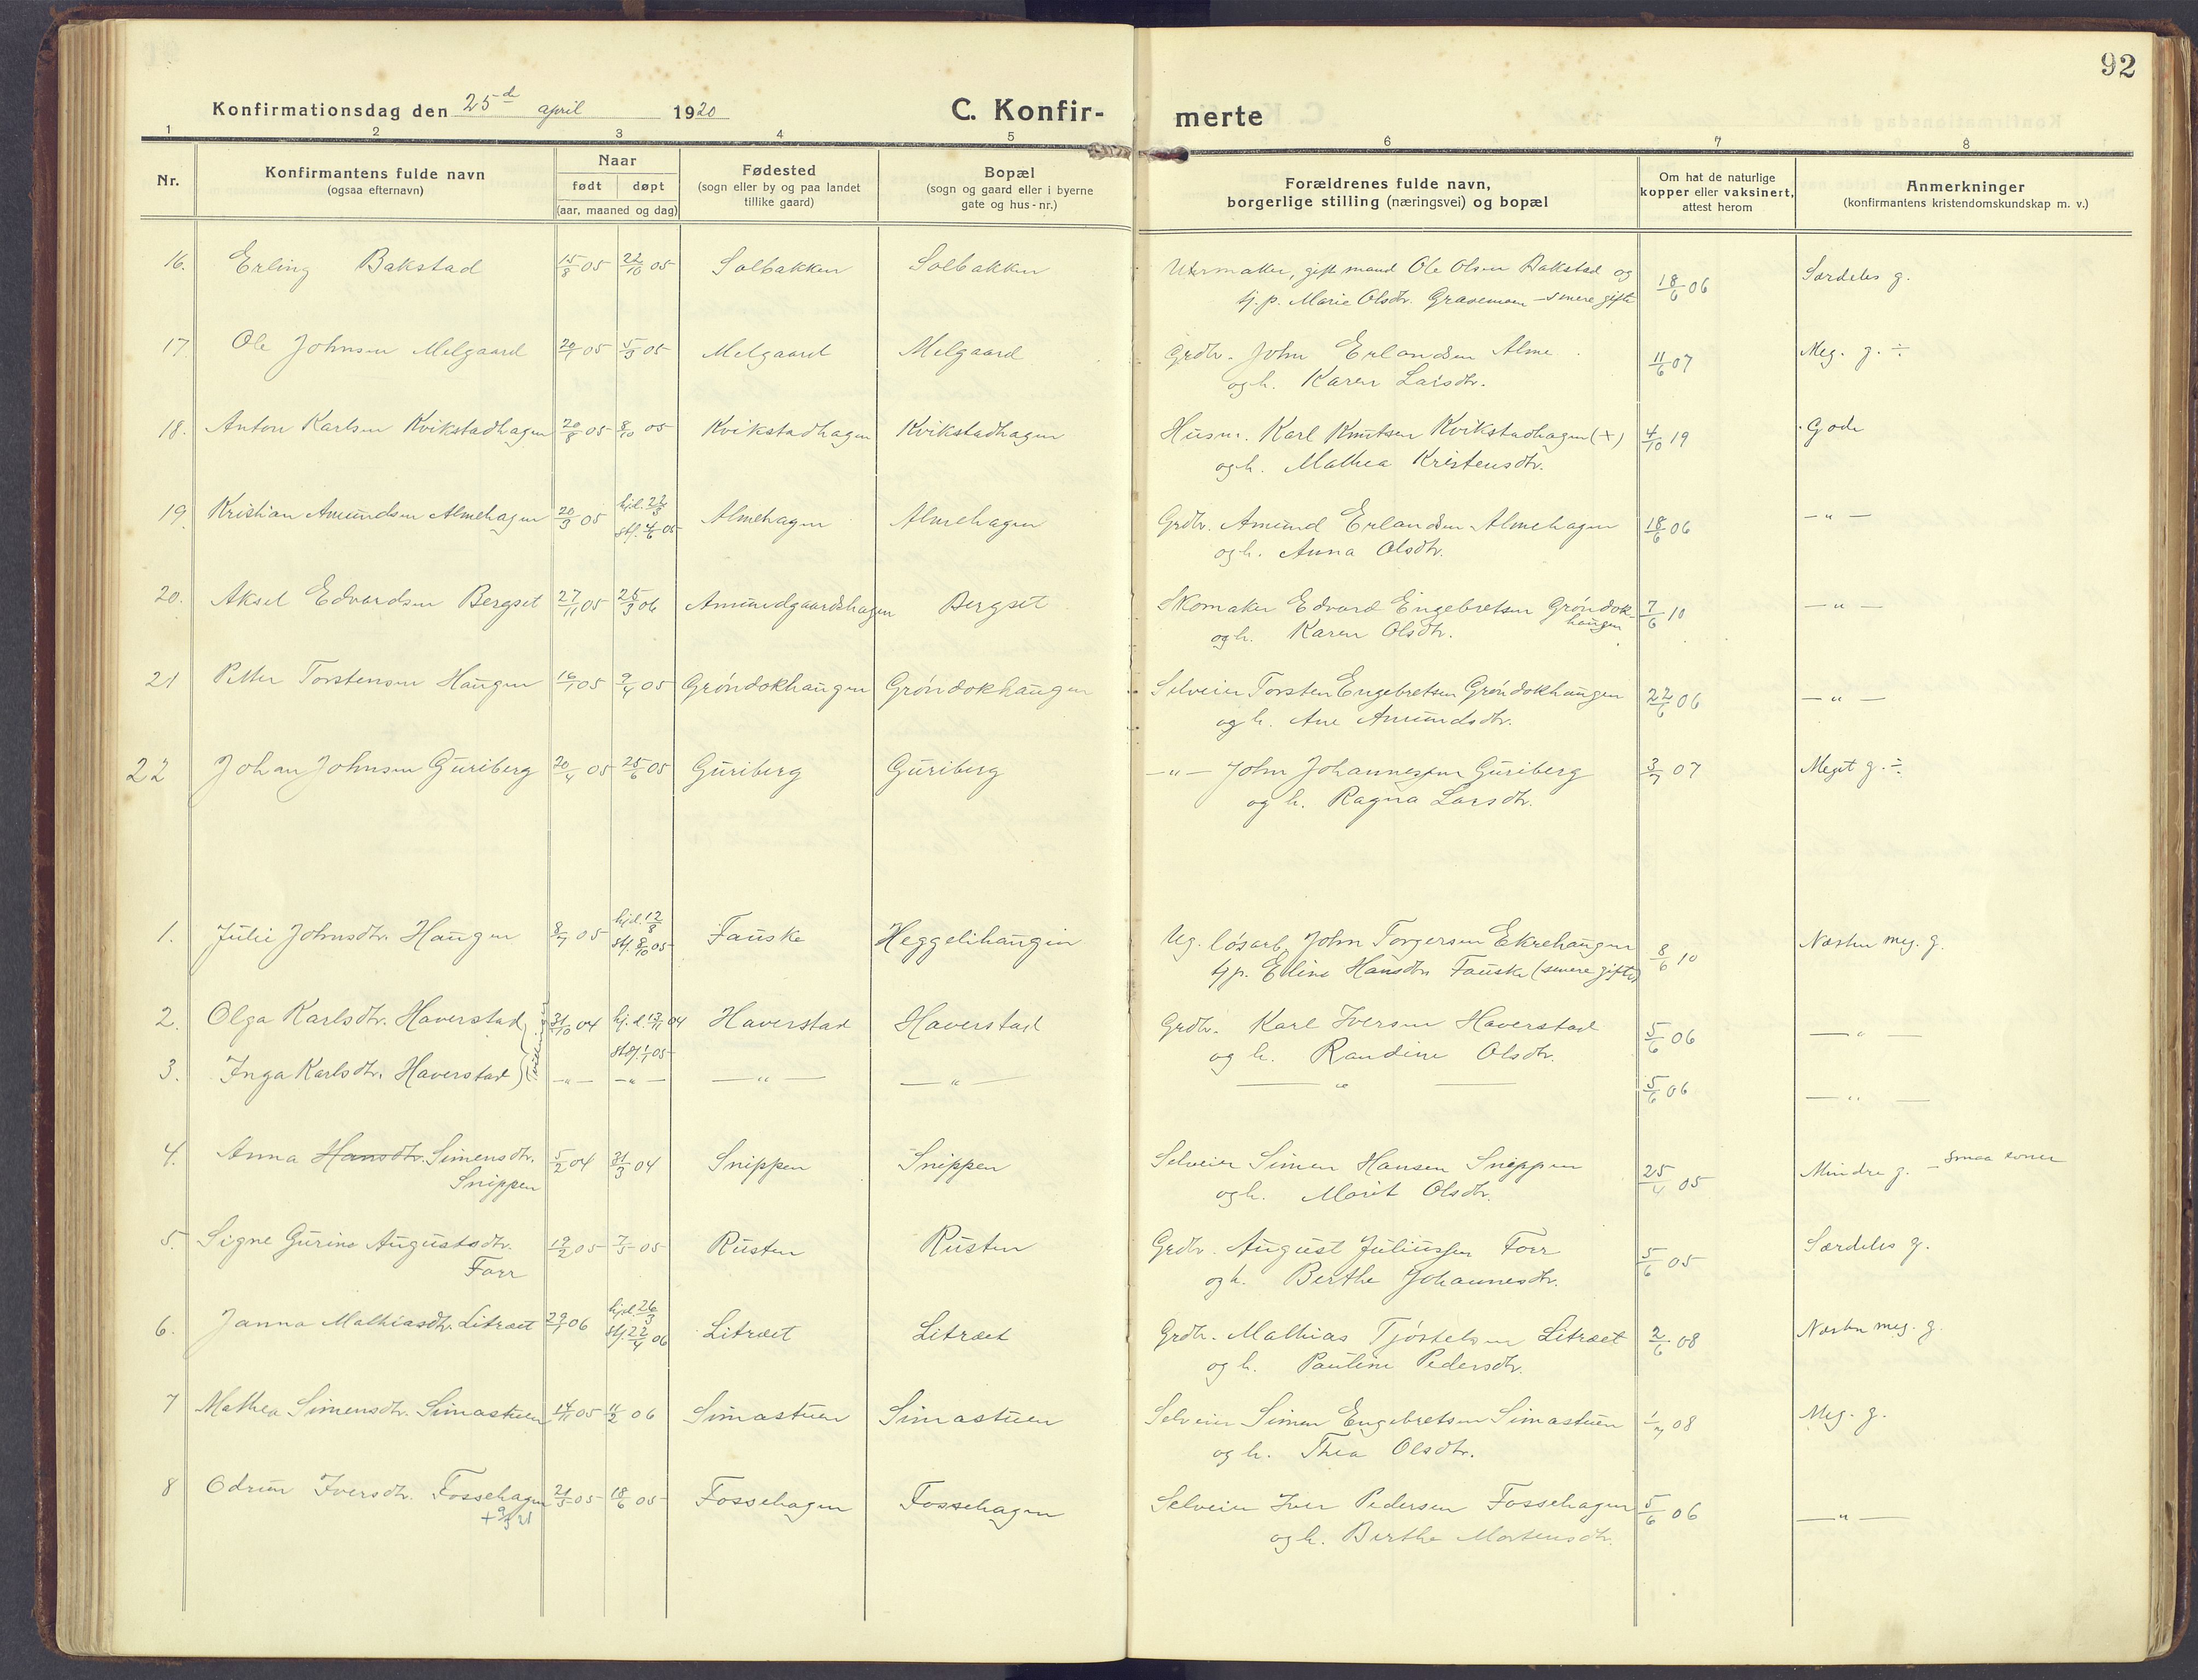 92
Konfirmationsdag den 25de april 1920
C. Konfir-
merte
1 2 3 4 5 6 7 8
Nr.
Konfirmantens fulde navn
(ogsaa efternavn)
Naar
født døpt
(aar, maaned og dag)
Fødested
(sogn eller by og paa landet
tillike gaard)
Bopæl
(sogn og gaard eller i byerne
gate og hus-nr.)
Forældrenes fulde navn,
borgerlige stilling (næringsvei) og bopæl
Om hat de naturlige
kopper eller vaksinert,
attest herom
Anmerkninger
(konfirmantens kristendomskundskap m. v.)
16. Erling Bakstad 15/8 05 22/10 05 Solbakken Solbakken Urmaker, gift mand Ole Olsen Bakstad og 18/6 06 Særdeles g.
tj. p. Marie Olsdtr. Gravemoen – senere gifte
17. Ole Johnsen Melgaard 20/1 05 5/3 05 Melgaard Melgaard Grdbr. John Erlandsen Alme 11/6 07 Meg. g. ÷
og h. Karen Larsdtr.
18. Anton Karlsen Kvikstadhagen 20/8 05 8/10 05 Kvikstadhagen Kvikstadhagen Husm. Karl Knutsen Kvikstadhagen (+) 4/10 19 Gode
og h. Mathea Kristensdtr.
19. Kristian Amundsen Almehagen 20/3 05 hjd. 22/3 Almehagen Almehagen Grdbr. Amund Erlandsen Almehagen 18/6 06 – " –
stf. 4/6 05 og h. Anna Olsdtr.
20. Aksel Edvardsen Bergset 27/11 05 25/3 06 Amundgaardshagen Bergset Skomaker Edvard Engebretsen Grøndok- 7/6 10 – " –
haugen
og h. Karen Olsdtr.
21 Petter Torstensen Haugen 16/1 05 9/4 05 Grøndokhaugen Grøndokhaugen Selveier Torsten Engebretsen Grøndokhaugen 22/6 06 – " –
og h. Ane Amundsdtr.
22 Johan Johnsen Guriberg 20/4 05 25/6 05 Guriberg Guriberg – " – John Johannessen Guriberg 3/7 07 Meget g. ÷
og h. Ragna Larsdtr.
1. Julie Johnsdtr. Haugen 8/7 05 hjd. 12/8 Fauske Heggelihaugen Ug. løsarb. John Torgersen Ekrehaugen 8/6 10 Næsten meg. g.
stf. 8/10 05 tj. p. Eline Hansdtr. Fauske (senere gifte)
2. Olga Karlsdtr. Haverstad 31/10 04 hj. d. 13/11 04 Haverstad Haverstad Grdbr. Karl Iversen Haverstad 5/6 06 – " –
stf. 1/1 05 og h. Randine Olsdtr.
3. Inga Karlsdtr. Haverstad – " – – " – – " – – " – – " – 5/6 06 – " –
4. Anna Hansdtr. Simensdtr. 5/2 04 31/3 04 Snippen Snippen Selveier Simen Hansen Snippen 25/4 05 Mindre g. – smaa evner
Snippen og h. Marit Olsdtr.
5. Signe Gurine Augustsdtr. 19/2 05 7/5 05 Rusten Rusten Grdbr. August Juliussen Forr 5/6 05 Særdeles g.
Forr og h. Berthe Johannesdtr.
6. Janna Mathiasdtr. Litræet 29/1 06 hjd. 26/3 Litræet Litræet Grdbr. Mathias Tjøstelsen Litræet 2/6 08 Næsten meg. g.
stf. 22/4 06 og h. Pauline Pedersdtr.
7 Mathea Simensdtr. Simastuen 14/11 05 11/2 06 Simastuen Simastuen Selveier Simen Engebretsen Simastuen 1/7 08 Meg. g.
og h. Thea Olsdtr.
8 Odrun Iversdtr. Fossehagen 21/5 05 18/6 05 Fossehagen Fossehagen Selveier Iver Pedersen Fossehagen 5/6 06 – " –
+ 9/3 21 og h. Berthe Mortensdtr.